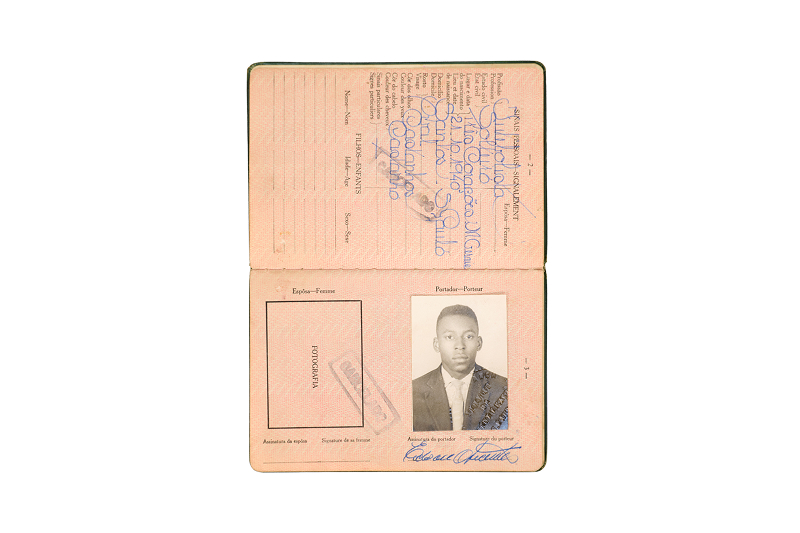 — 2 —
SINAIS PESSOAIS—SIGNALEMENT
Espôsa—Femme
Profissão
Profession
Futebolista
Estado civil
État civil
Solteiro
Lugar e data
do nascimento
Lieu et date
de naissance
Três Corações M. Gerais
21.10.1940
Domicílio
Domicile
Santos - S. Paulo
Rosto
Visage
Oval
Côr dos olhos
Couleur des yeux
Castanhos
Côr do cabelo
Couleur des cheveux
Castanho
Sinais particulares
Signes particuliers
FILHOS—ENFANTS
Nome—Nom
Idade—Age
Sexo—Sexe
— 3 —
Espôsa—Femme
Portador—Porteur
FOTOGRAFIA
CANCELADO
Assinatura da espôsa
Signature de sa femme
Assinatura do portador
Signature du porteur